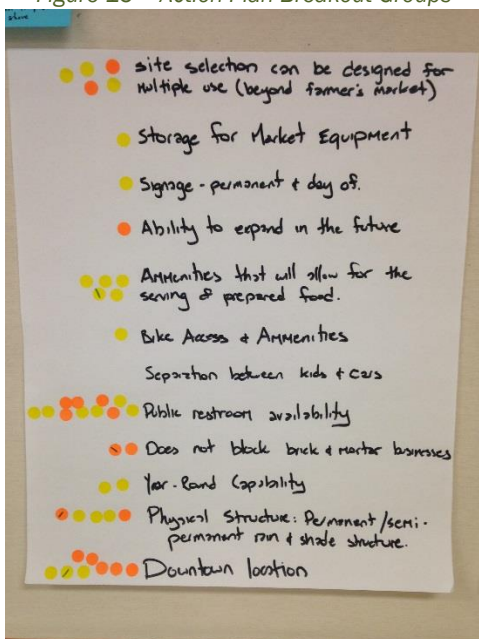 Figure 28 - Action Plan Breakout Groups
above
site selection can be designed for
Multiple use (beyond farmer's market)
Storage for Market Equipment
Signage - permanent & day of.
Ability to expand in the future
Ammenities that will allow for the
serving of prepared food.
Bike Access & Ammenities
Separation between kids & cars
Public restroom availability
Does not block brick & mortar businesses
Year-Round Capability
Physical Structure: Permanent/semi-
permanent rain & shade structure.
Downtown location